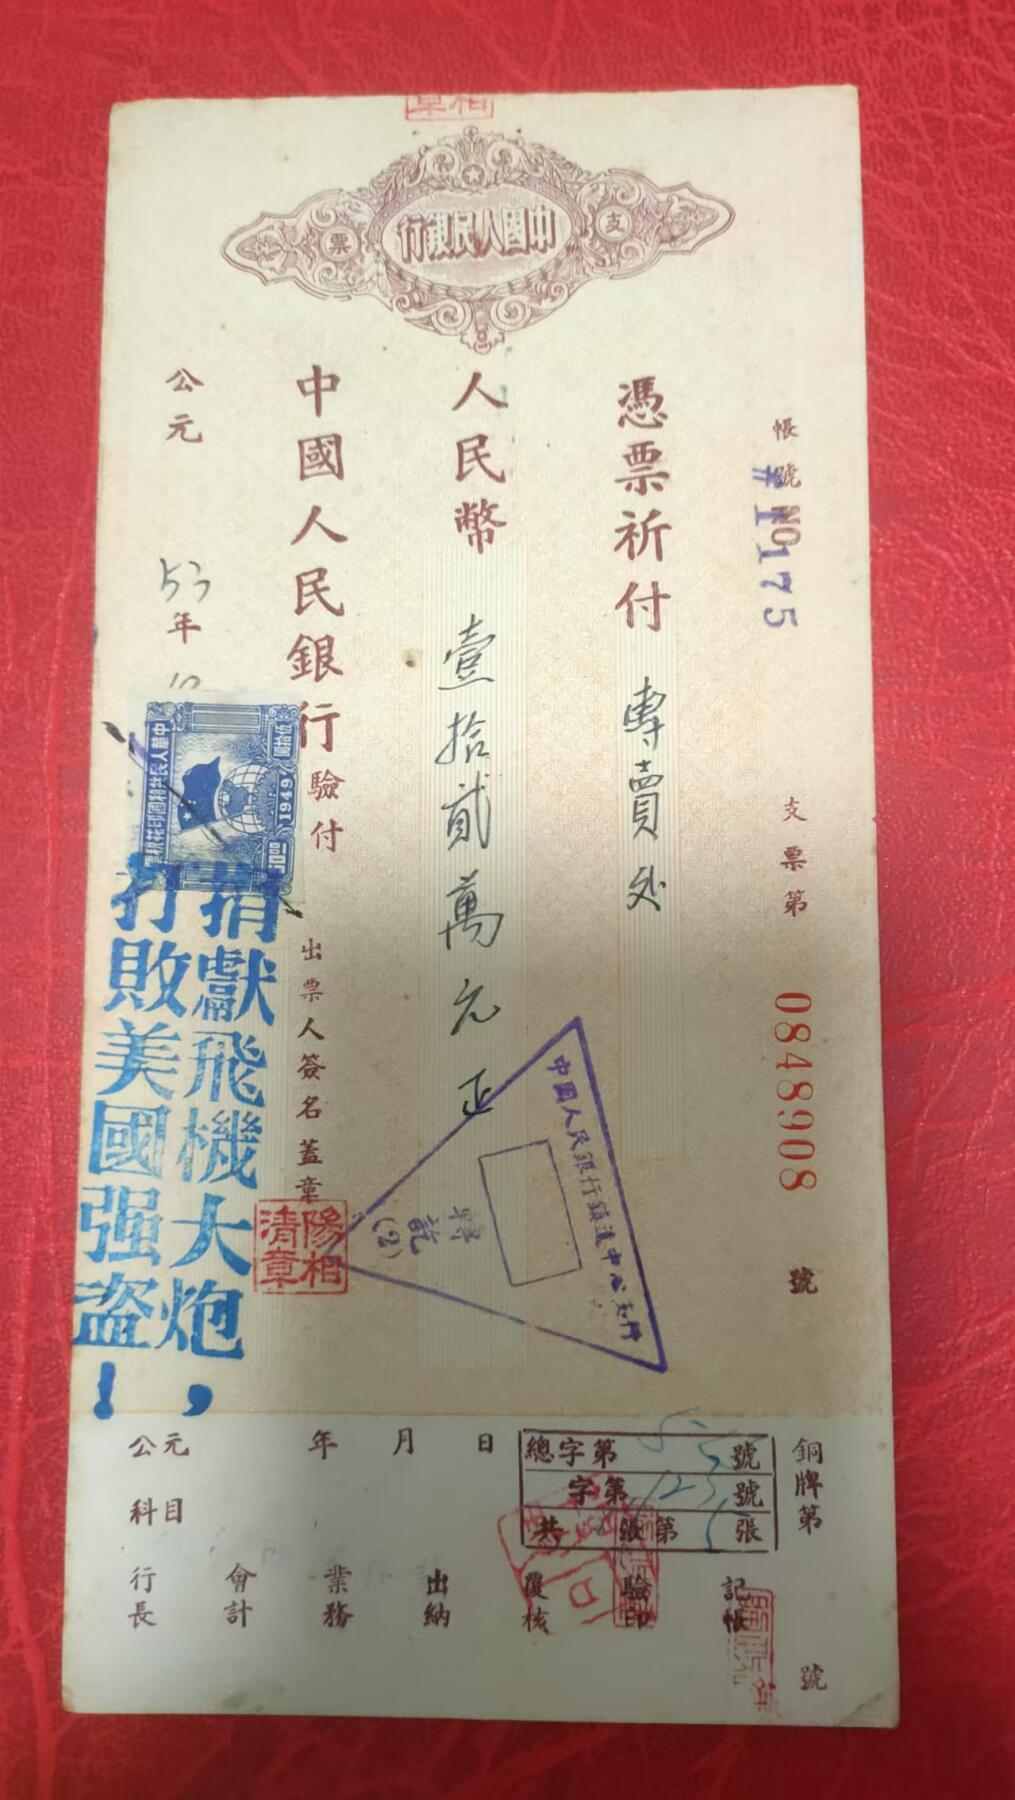 中國人民銀行
支票
帳號 NO
#1175
支票第 0848908 號
憑票祈付 專賣处
人民幣 壹拾貳萬元正
中國人民銀行驗付
出票人簽名蓋章
公元 53年
中華人民共和國印花稅票
伍拾圓
1949
打敗美國强盜!
捐獻飛機大炮,
陽相清章
中國人民銀行鎮遠中心支行
轉訖
(2)
公元 年 月 日
總字第 號
字第 123 號
共 張第 張
銅牌第 號
科目
行長
會計
業務
出納
覆核
驗印
記帳